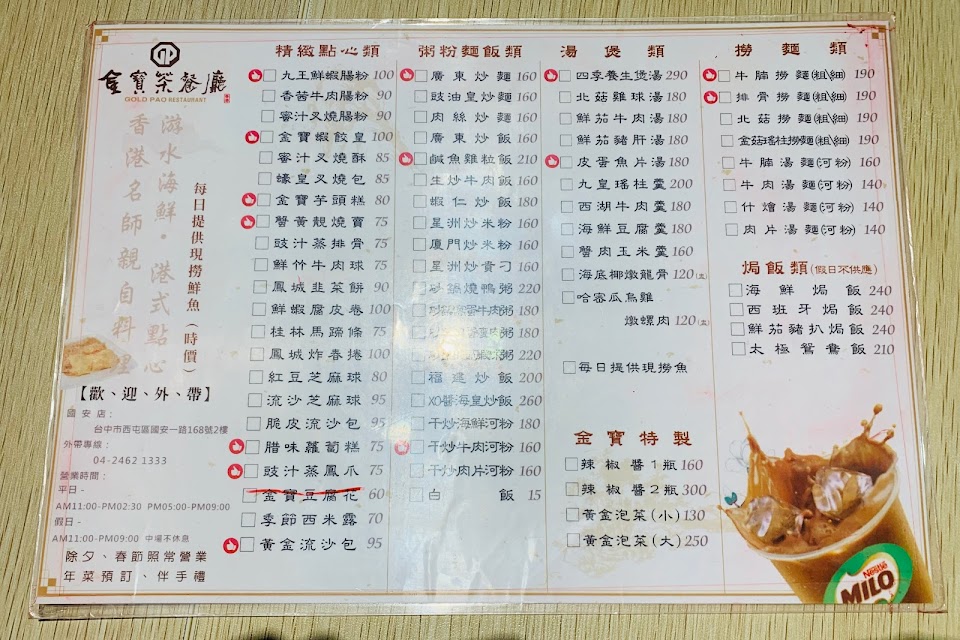 金寶茶餐廳
GOLD PAO RESTAURANT
游水海鮮·港式點心
香港名師親自料理
每日提供現撈鮮魚(時價)
【歡、迎、外、帶】
國安店:
台中市西屯區國安一路168號2樓
外帶專線:
04-2462 1333
營業時間:
平日-
AM11:00-PM02:30 PM05:00-PM09:00
假日-
AM11:00-PM09:00 中場不休息
除夕、春節照常營業
年菜預訂、伴手禮
精緻點心類
九王鮮蝦腸粉 100
香茜牛肉腸粉 90
蜜汁叉燒腸粉 90
金寶蝦餃皇 100
蜜汁叉燒酥 85
蠔皇叉燒包 85
金寶芋頭糕 80
蟹黃靚燒賣 75
豉汁蒸排骨 75
鮮竹牛肉球 75
鳳城韭菜餅 90
鮮蝦腐皮卷 100
桂林馬蹄條 75
鳳城炸春捲 100
紅豆芝麻球 80
流沙芝麻球 95
脆皮流沙包 95
腊味蘿蔔糕 75
豉汁蒸鳳爪 75
金寶豆腐花 60
季節西米露 70
黃金流沙包 95
粥粉麵飯類
廣東炒麵 160
豉油皇炒麵 160
肉絲炒麵 160
廣東炒飯 160
鹹魚雞粒飯 210
生炒牛肉飯 160
蝦仁炒飯 180
星洲炒米粉 160
廈門炒米粉 160
星洲炒貴刁 160
砂鍋燒鴨粥 220
牛肉粥 180
粥 180
粥 220
福建炒飯 200
XO醬海皇炒飯 260
干炒海鮮河粉 180
干炒牛肉河粉 160
干炒肉片河粉 160
白飯 15
湯煲類
四季養生煲湯 290
北菇雞球湯 180
鮮茄牛肉湯 180
鮮茄豬肝湯 180
皮蛋魚片湯 180
九皇瑤柱羹 200
西湖牛肉羹 180
海鮮豆腐羹 180
蟹肉玉米羹 160
海底椰燉龍骨 120(盅)
哈密瓜烏雞
燉螺肉 120(盅)
每日提供現撈魚
金寶特製
辣椒醬1瓶 160
辣椒醬2瓶 300
黃金泡菜(小) 130
黃金泡菜(大) 250
撈麵類
牛腩撈麵(粗\細) 190
排骨撈麵(粗\細) 190
北菇撈麵(粗\細) 190
金菇瑤柱撈麵(粗\細) 190
牛腩湯麵(河粉) 160
牛肉湯麵(河粉) 140
什燴湯麵(河粉) 140
肉片湯麵(河粉) 140
焗飯類(假日不供應)
海鮮焗飯 240
西班牙焗飯 240
鮮茄豬扒焗飯 240
太極鴛鴦飯 210
Nestle
MILO